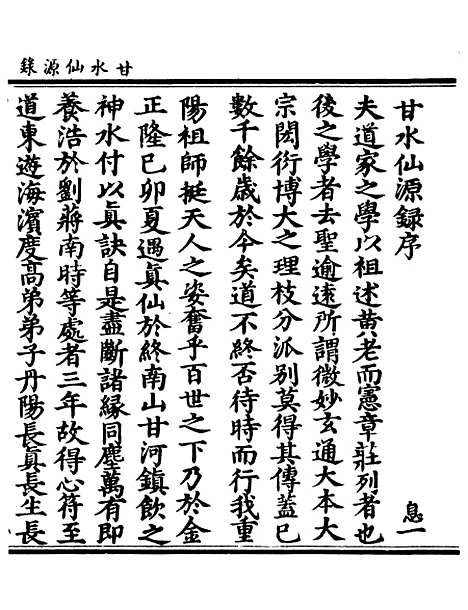 甘水仙源録
甘水仙源録序
息一
夫道家之學以祖述黄老而憲章莊列者也
後之學者去聖逾遠所謂微妙玄通大本大
宗閎衍博大之理枝分派别莫得其傳蓋已
數千餘歳於今矣道不終否待時而行我重
陽祖師挺天人之姿奮乎百世之下乃於金
正隆已卯夏遇真仙於終南山甘河鎮飲之
神水付以真訣自是盡斷諸縁同塵萬有即
養浩於劉蔣南時等處者三年故得心符至
道東遊海濱度高弟弟子丹陽長真長生長